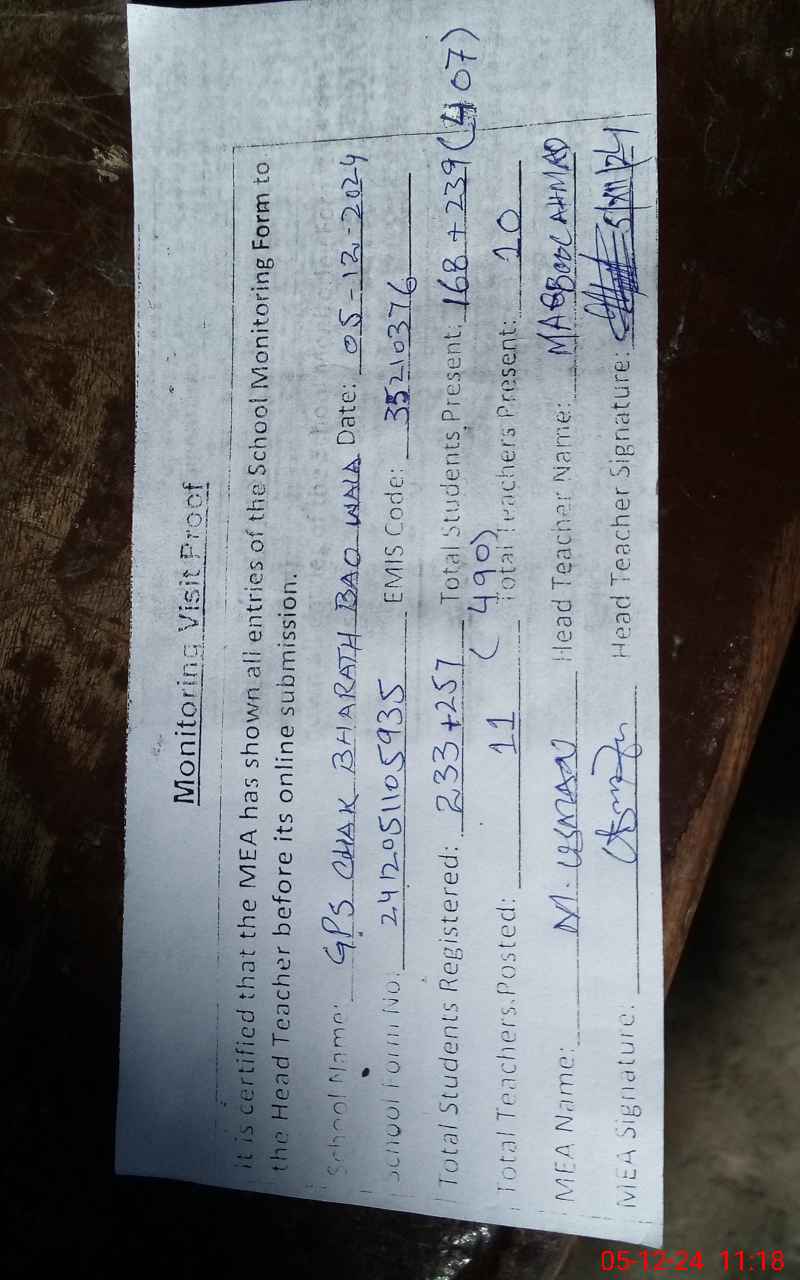 Monitoring Visit Proof
It is certified that the MEA has shown all entries of the School Monitoring Form to
the Head Teacher before its online submission.
School Name: GPS CHAK BHARATH BAO WALA Date: 05-12-2024
School Form No: 2412051105935 EMIS Code: 35210376
Total Students Registered: 233+257 (490) Total Students Present: 168+239(407)
Total Teachers Posted: 11 Total Teachers Present: 10
MEA Name: M. USMAN Head Teacher Name: MAQBOOL AHMAD
MEA Signature: Head Teacher Signature: 5/XII/24
05-12-24 11:18